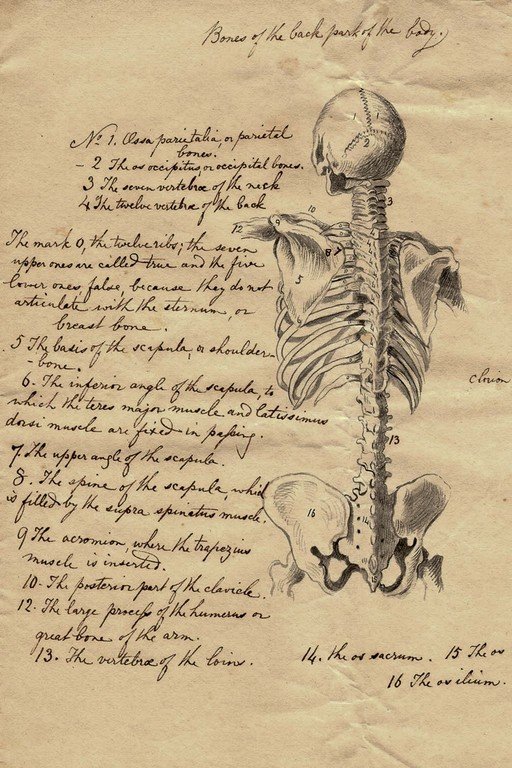 Bones of the back part of the body.
No 1. Ossa parietalia, or parietal
bones.
- 2 The os occipitus, or occipital bones.
3 The seven vertebræ of the neck
4 The twelve vertebræ of the back
The mark 0, the twelve ribs; the seven
upper ones are called true and the five
lower ones, false, because they do not
articulate with the sternum, or
breast bone.
5 The basis of the scapula, or shoulder-
-bone.
6. The inferior angle of the scapula, to
which the teres major muscle and latissimus
dorsi muscle are fixed in passing.
7 The upper angle of the scapula.
8. The spine of the scapula, which
is filled by the supra spinatus muscle.
9 The acromion, where the trapezius
muscle is inserted.
10. The posterior part of the clavicle.
12. The large process of the humerus or
great bone of the arm.
13. The vertebræ of the loins.
14. the os sacrum. 15 The os
16 The os ilium.
1 1
2
3
10
12
9
8
5
13
16
14